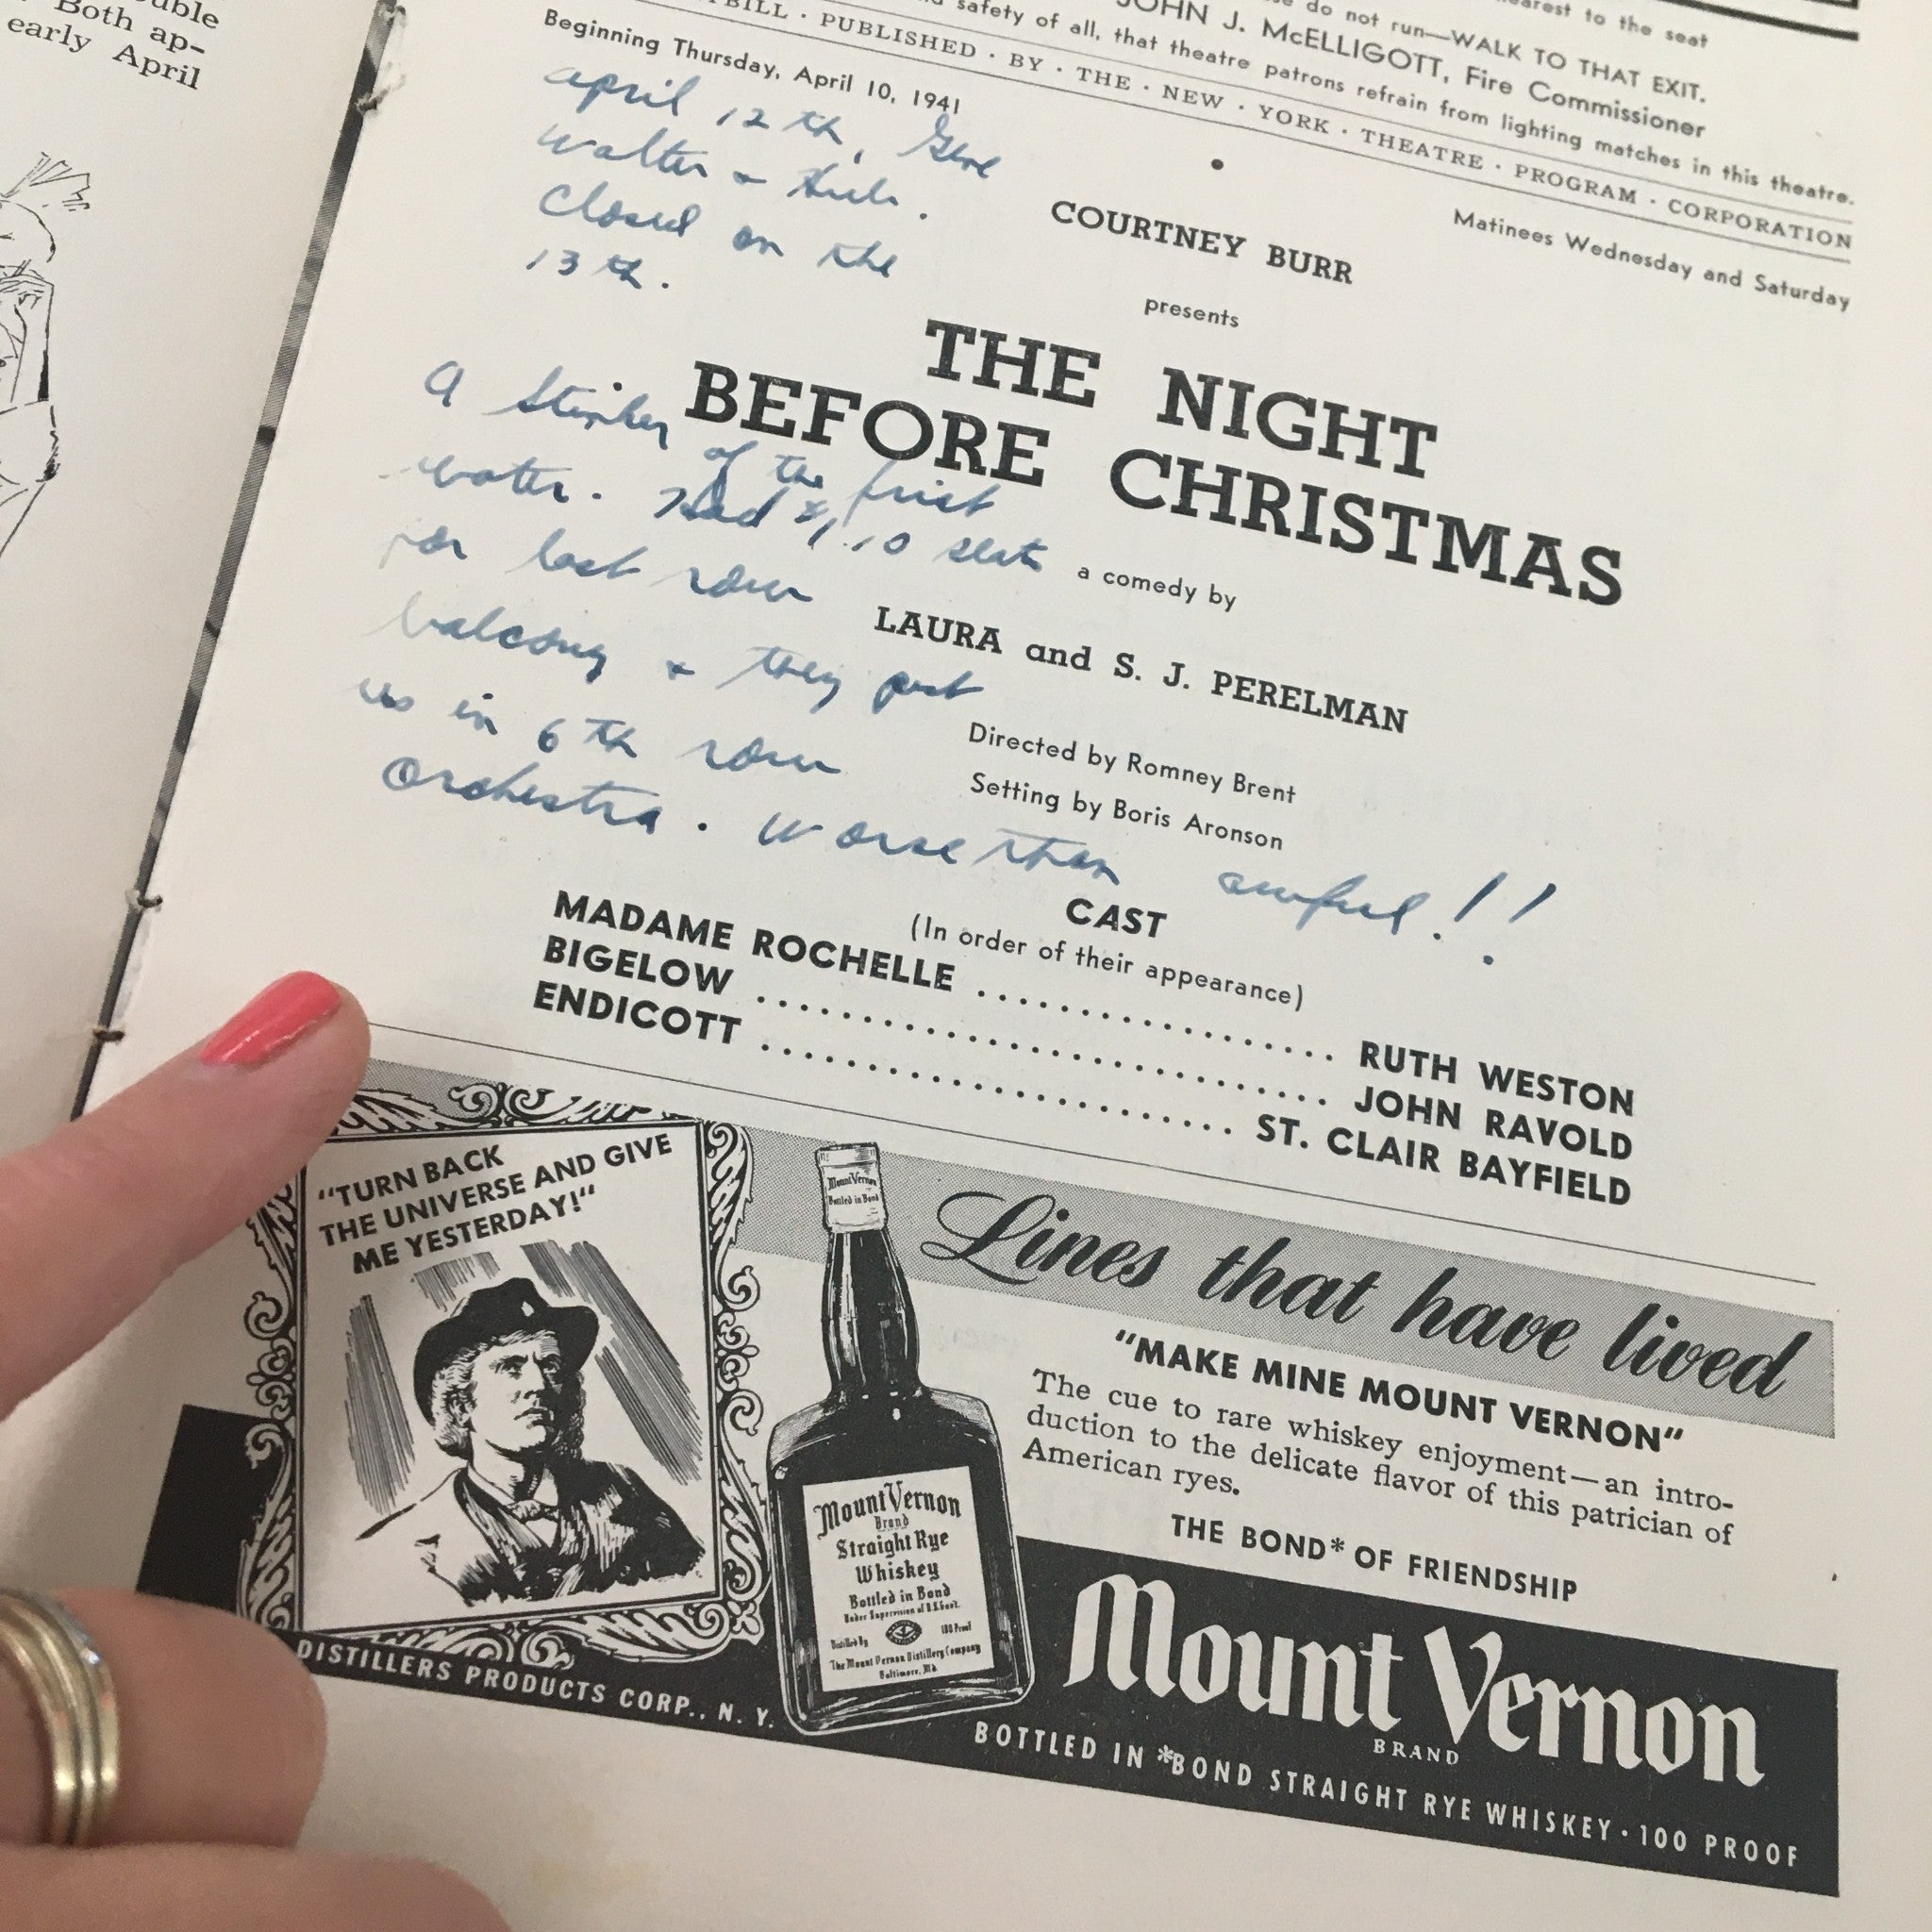 uble
Both ap-
early April
nearest to the seat
do not run—WALK TO THAT EXIT.
JOHN J. McELLIGOTT, Fire Commissioner
safety of all, that theatre patrons refrain from lighting matches in this theatre.
BILL · PUBLISHED · BY · THE · NEW · YORK · THEATRE · PROGRAM · CORPORATION
Beginning Thursday, April 10, 1941
Matinees Wednesday and Saturday
april 12 th,
Walter +
Closed on the
13 th.
COURTNEY BURR
presents
THE NIGHT
BEFORE CHRISTMAS
a comedy by
LAURA and S. J. PERELMAN
Directed by Romney Brent
Setting by Boris Aronson
A Stinker
of the first
water. Had $1.10 seats
for last row
balcony & they put
us in 6 th row
Orchestra. Worse than awful!!
CAST
(In order of their appearance)
MADAME ROCHELLE .......................... RUTH WESTON
BIGELOW .......................... JOHN RAVOLD
ENDICOTT .......................... ST. CLAIR BAYFIELD
"TURN BACK
THE UNIVERSE AND GIVE
ME YESTERDAY!"
Mount Vernon
Bottled in Bond
Lines that have lived
"MAKE MINE MOUNT VERNON"
The cue to rare whiskey enjoyment—an intro-
duction to the delicate flavor of this patrician of
American ryes.
THE BOND* OF FRIENDSHIP
Mount Vernon
Brand
Straight Rye
Whiskey
Bottled in Bond
Under Supervision of U.S. Govt.
Distilled By 100 Proof
The Mount Vernon Distillery Company
Baltimore, Md.
Mount Vernon
BRAND
BOTTLED IN *BOND STRAIGHT RYE WHISKEY · 100 PROOF
DISTILLERS PRODUCTS CORP., N. Y.